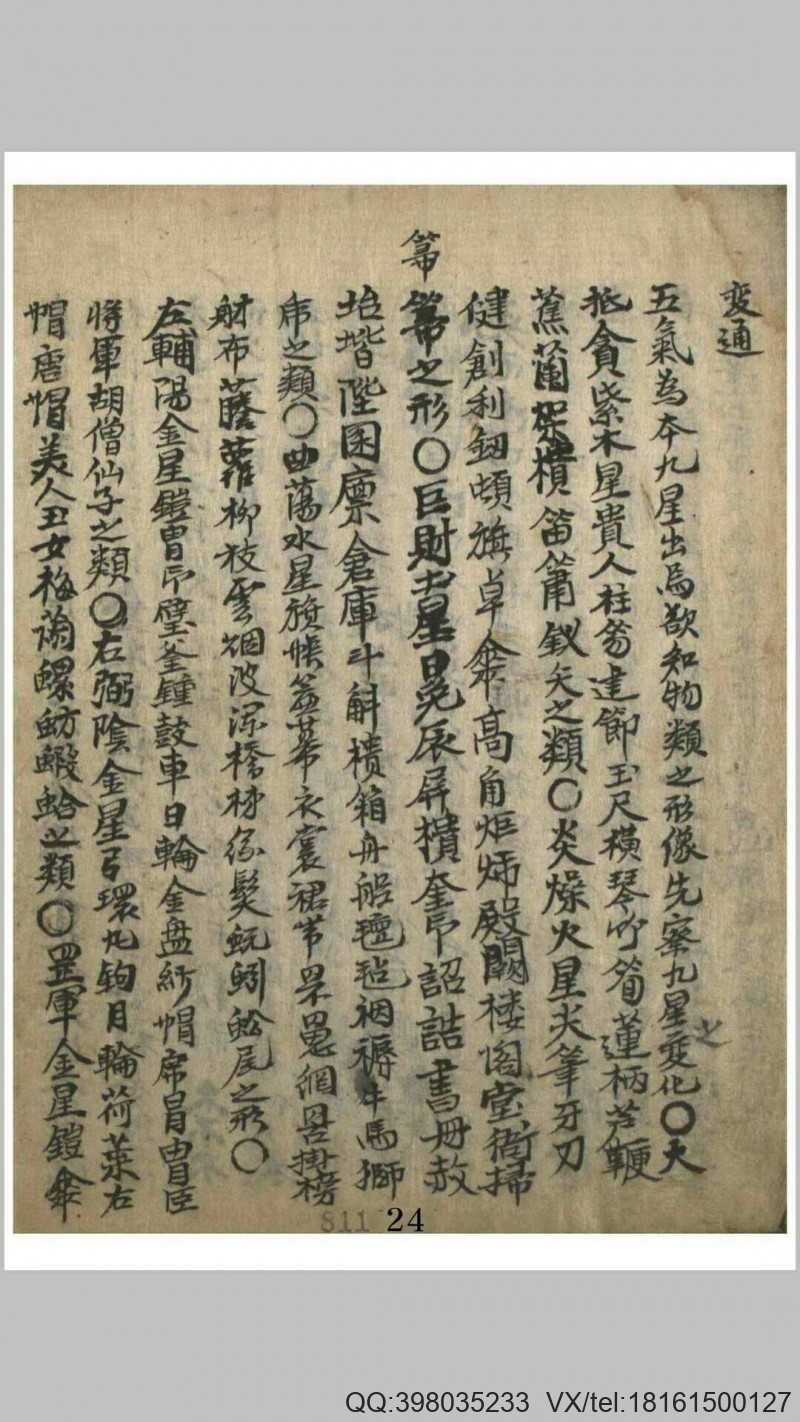 変通
五氣為本九星出焉欲知物類之形像先察九星変化之〇天
抵貪紫木星貴人柱笏建節玉尺橫琴竹筍蓮柄芦鞭
蕉蔔架横笛簫釵矢之類〇炎燥火星尖筆牙刀
健創利釼頓旗卓傘高角炬殿閣楼閣堂衙掃
箒
箒之形〇巨財土星冕屏横奎印詔誥書冊赦
坮堦陛囷廩倉庫斗斛樻箱舟船氊毡裀褥牛馬獅
席之類〇曲蕩水星旗帳盖幕衣裳裙帯罘罳網罟掛榜
財布藤蘿柳枝雲烟波深橋髮蚖蚓蚣尾之形〇
左輔陽金星鎧冑印璧釜鍾鼓車日輪金盘帽席冑臣
将軍胡僧仙子之類〇右弼陰金星弓環丸鉤月輪荷葉右
帽唐帽美人丑女梅螺蚄蝦蛤之類〇罡軍金星鎧傘
811 24
QQ:398035233 VX/tel:18161500127